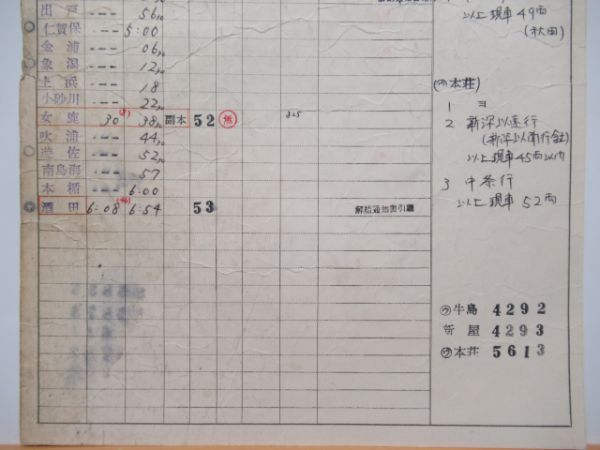 出戸 --- 56
仁賀保 --- 5:00
金浦 --- 06
象潟 --- 12
上浜 --- 18
小砂川 --- 22
女鹿 30 (8) 38 副本 52 無 825
吹浦 --- 44
遊佐 --- 52
南鳥海 --- 57
本楯 --- 6:00
酒田 6-08 (46) 6:54 53 解結通知書引継
以上 現車 49両
(秋田)
(ウ本荘)
1 ヨ
2 新潟以遠行
以上 現車 45両以内
3 中条行
以上 現車 52両
ウ牛島 4292
新屋 4293
ウ本荘 5613